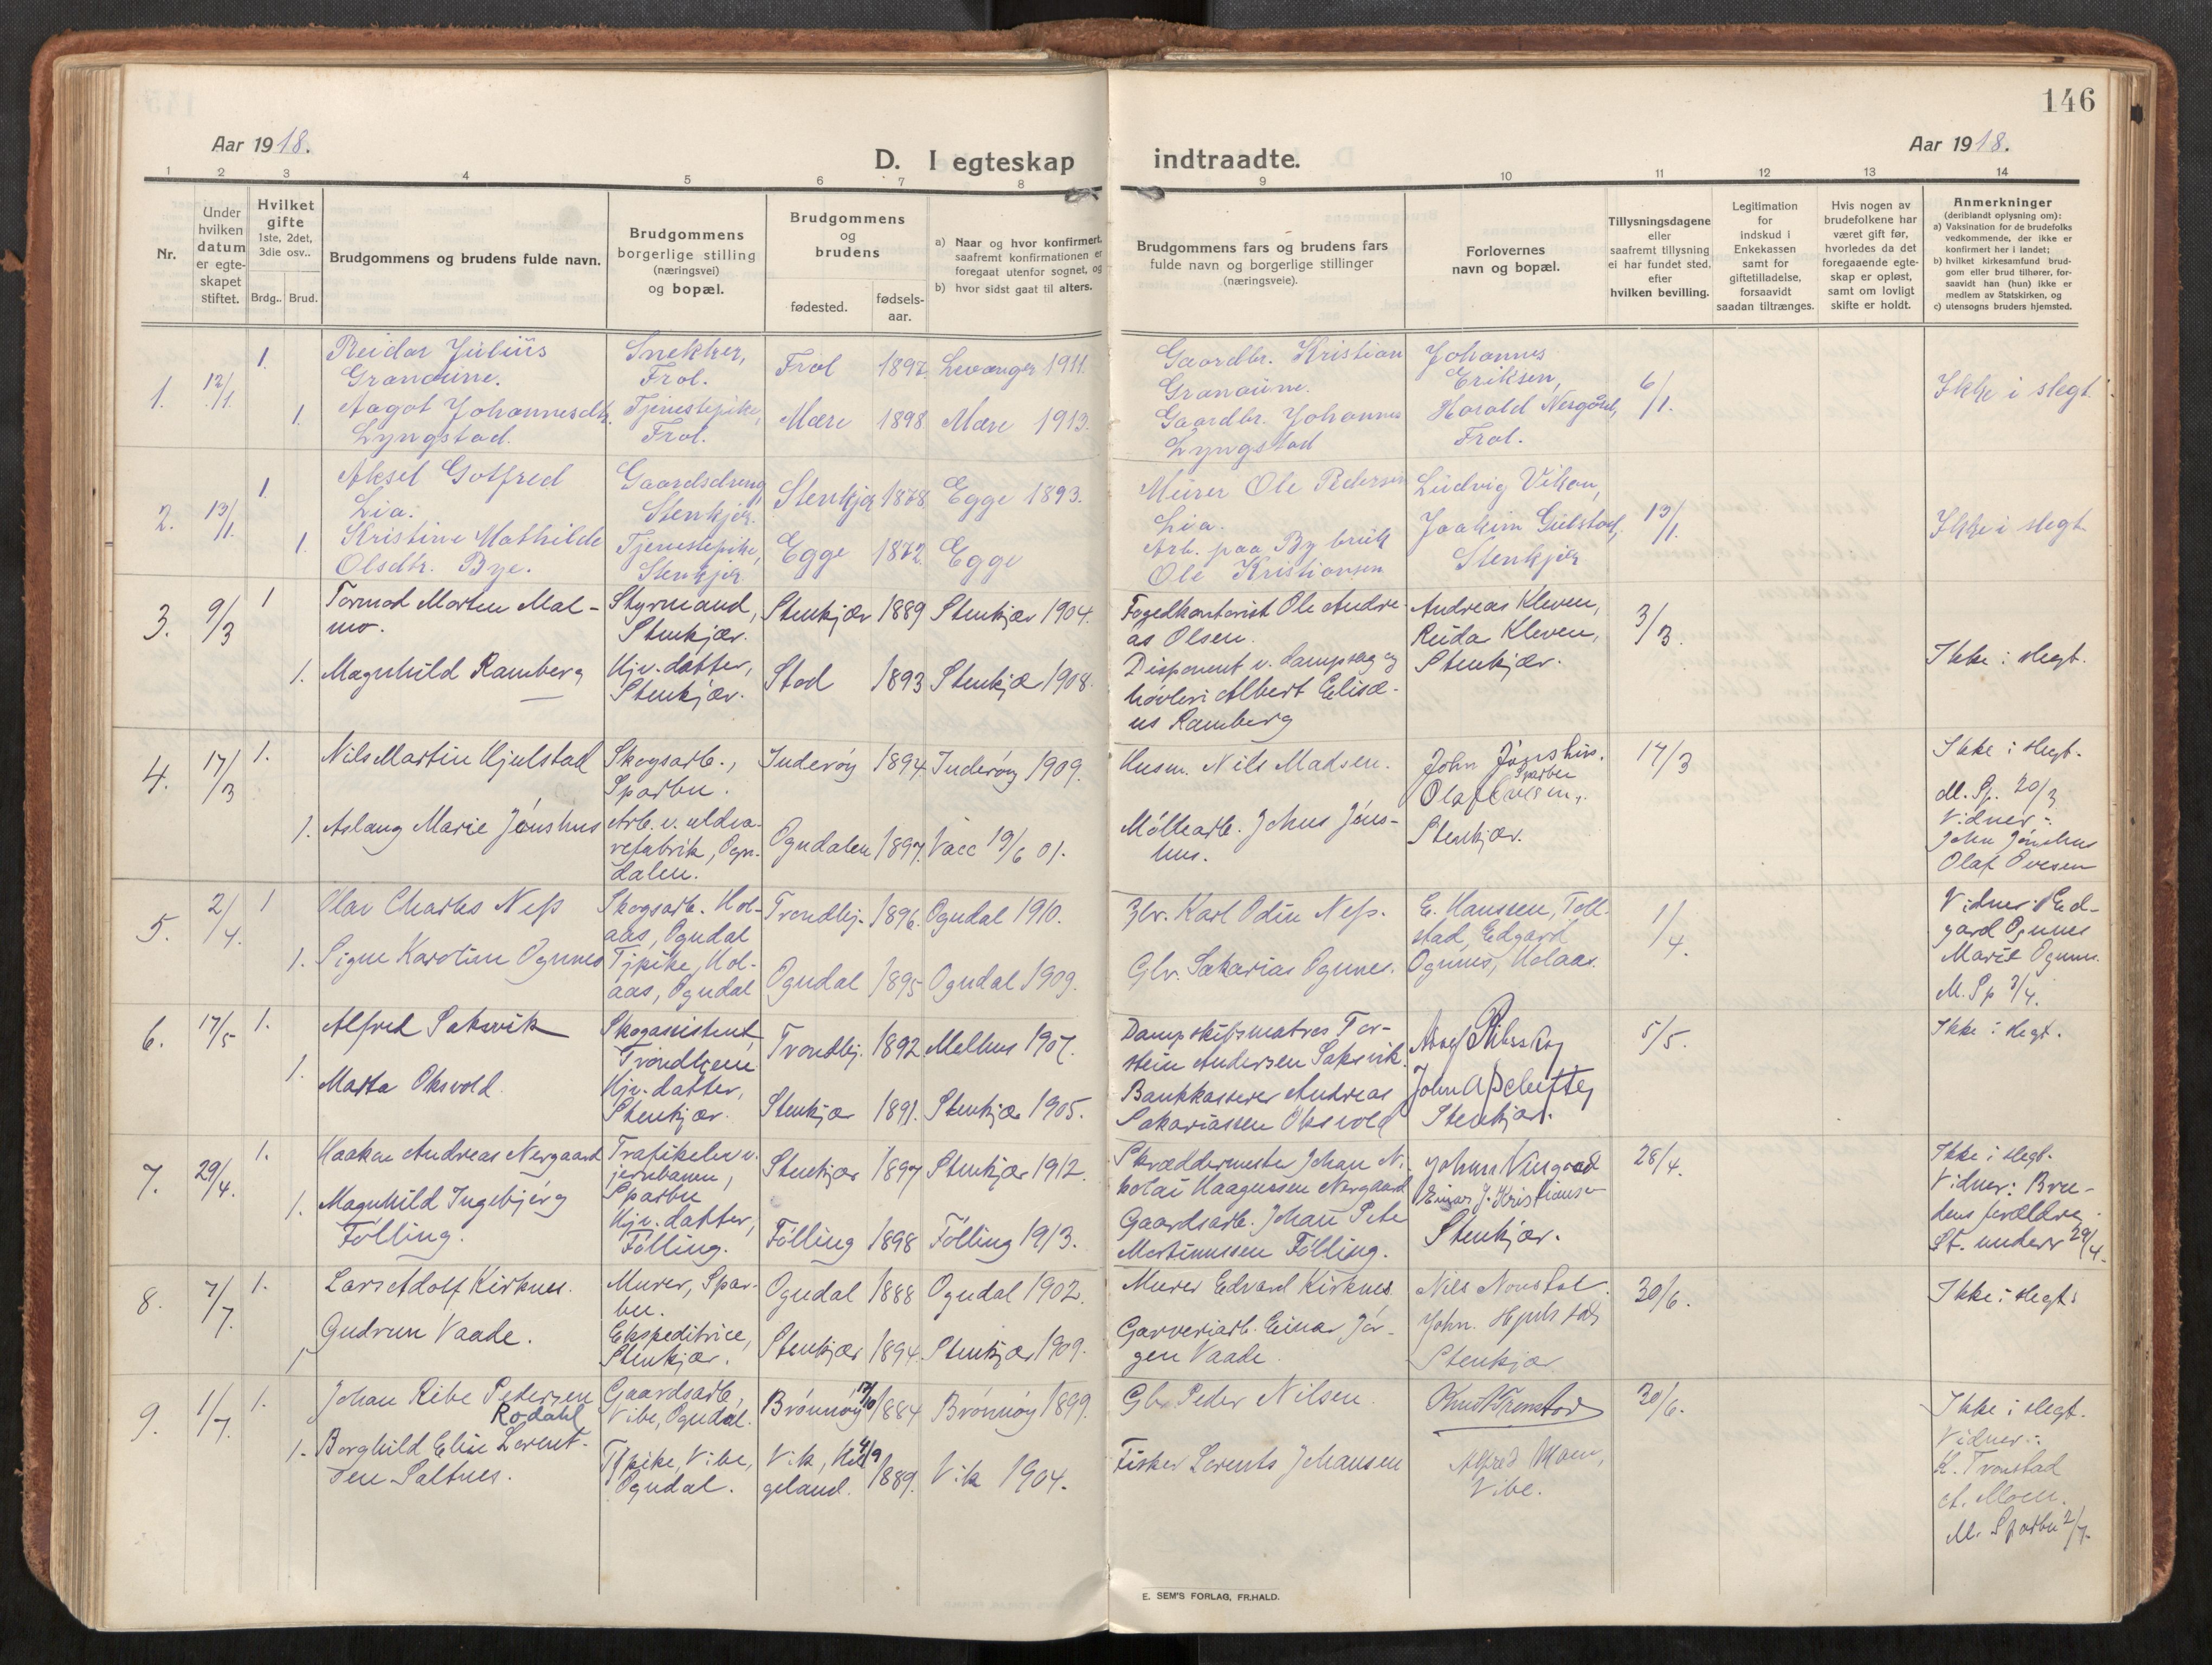 146
Aar 1918.
Aar 1918.
D. I egteskap indtraadte.
1 2 3 4 5 6 7 8 9 10 11 12 13 14
Nr.
Under hvilken datum er egte-skapet stiftet.
Hvilket gifte
1ste, 2det, 3die osv..
Brdg.. Brud.
Brudgommens og brudens fulde navn.
Brudgommens borgerlige stilling (næringsvei) og bopæl.
Brudgommens og brudens
fødested.
fødsels-aar.
a) Naar og hvor konfirmert, saafremt konfirmationen er foregaat utenfor sognet, og
b) hvor sidst gaat til alters.
Brudgommens fars og brudens fars fulde navn og borgerlige stillinger (næringsveie).
Forlovernes navn og bopæl.
Tillysningsdagene eller saafremt tillysning ei har fundet sted, efter hvilken bevilling.
Legitimation for indskud i Enkekassen samt for giftetilladelse, forsaavidt saadan tiltrænges.
Hvis nogen av brudefolkene har været gift før, hvorledes da det foregaaende egte-skap er opløst, samt om lovligt skifte er holdt.
Anmerkninger
(deriblandt oplysning om):
a) Vaksination for de brudefolks vedkommende, der ikke er konfirmert her i landet;
b) hvilket kirkesamfund brud-gom eller brud tilhører, for-saavidt han (hun) ikke er medlem av Statskirken, og
c) utensogns bruders hjemsted.
1. 12/1 1. Reidar Julius Granaune. Snekker, Frol. Frol 1897. Levanger 1911. Gaardbr. Kristian Granaune. Johannes Eriksen, 6/1. Ikke i slegt.
1. Aagot Johannesdtr. Lyngstad. Tjenestepike, Frol. Mære 1898 Mære 1913. Gaardbr. Johannes Lyngstad Harald Nesgård, Frol.
2. 13/1. 1. Aksel Gotfred Lia. Gaardsdreng Stenkjær. Stenkjær 1878 Egge 1893. Murer Ole Pedersen Lia. Ludvig Vikan, 13/1. Ikke i slegt
1. Kristine Mathilde Olsdtr. Bye. Tjenestepike, Stenkjær. Egge 1872. Egge Arb. paa By bruk Ole Kristiansen Joakim Gulstad, Stenkjær
3. 9/3 1 Tormod Morten Mal-mo. Styrmand, Stenkjær. Stenkjær 1889 Stenkjær 1904. Fogedkontorist Ole Andre-as Olsen. Andreas Kleven, Reidar Kleven, Stenkjær. 3/3. Ikke i slegt.
1. Magnhild Ramberg Hjv. datter, Stenkjær. Stod 1893 Stenkjær 1908. Disponent v. dampsag og høvleri Albert Elisæ-us Ramberg
4. 17/3 1. Nils Martin Hjulstad Skogsarb., Sparbu. Inderøy 1894 Inderøy 1909. Husm. Nils Madsen. John Jønshus. Sparbu Olaf Ovesen, Stenkjær. 17/3 Ikke i slegt.
M. Sp. 20/3
Vidner:
John Jønshus
Olaf Ovesen
1. Aslaug Marie Jønshus Arb. v. uldva-refabrik, Ogn-dalen. Ogndalen 1897. Vacc 19/6 01. Møllearb. Johns Jøns-hus.
5. 2/4. 1 Olav Charles Ness Skogsarb. Hol-aas, Ogndal Trondhj. 1896. Ogndal 1910. Glv. Karl Odin Ness. E. Hanssen, Toll-stad, Edgard Ognnes, Holaas. 1/4. Vidner: Ed-gard Ognnes
Marie Ognnes.
M. Sp 3/4.
1. Signe Karoline Ognnes Tjpike, Hol-aas, Ogndal Ogndal 1895 Ogndal 1909. Glv. Sakarias Ognnes.
6. 17/5 1. Alfred Saksvik Skogassistent, Trondhjem Trondhj. 1892 Melhus 1907. Dampskibsmatros Tor-stein Andersen Saksvik. 5/5. Ikke i slegt.
1. Marta Oksvold. Hjv. datter, Stenkjær. Stenkjær 1891. Stenkjær 1905. Bankkasserer Andreas Sakariassen Oksvold John A Stenkjær.
7. 29/4. 1. Haakon Andreas Nergaard Trafikelev v. jernbanen, Sparbu Stenkjær 1897 Stenkjær 1912. Skræddermester Johan Ni-kolai Haagensen Nergaard Einar J. Kristiansen Stenkjær. 28/4. Ikke i slegt.
Vidner: Bru-dens forældre.
St. underr 29/4.
1. Magnhild Ingebjørg Følling. Hjv. datter, Følling. Følling 1898 Følling 1913. Gaardsarb. Johan Peter Martinussen Følling.
8. 7/7. 1. Lars Adolf Kirknes. Murer, Spar-bu. Ogndal 1888 Ogndal 1902. Murer Edvard Kirknes. Nils John. Hjulstad Stenkjær 30/6. Ikke i slegt:
1 Gudrun Vaade. Ekspeditrice, Stenkjær. Stenkjær 1894. Stenkjær 1909. Garveriarb. Einar Jør-gen Vaade.
9. 1/7. 1. Johan Ribe Pedersen Rodahl Gaardsarb, Vibe, Ogndal. Brønnøy 17/10 1884 Brønnøy 1899. Gb. Peder Nilsen. Knut Tronstad 30/6. Ikke i slegt.
Vidner:
K. Tronstad
A. Moen.
M. Sparbu 2/7.
1. Borghild Elise Lorent-sen Saltnes. Tjpike, Vibe, Ogndal. Vik, Hel-geland. 4/9 1889. Vik 1904. Fisker Lorents Johansen Alfred Moen, Vibe.
E. SEM'S FORLAG, FR.HALD.